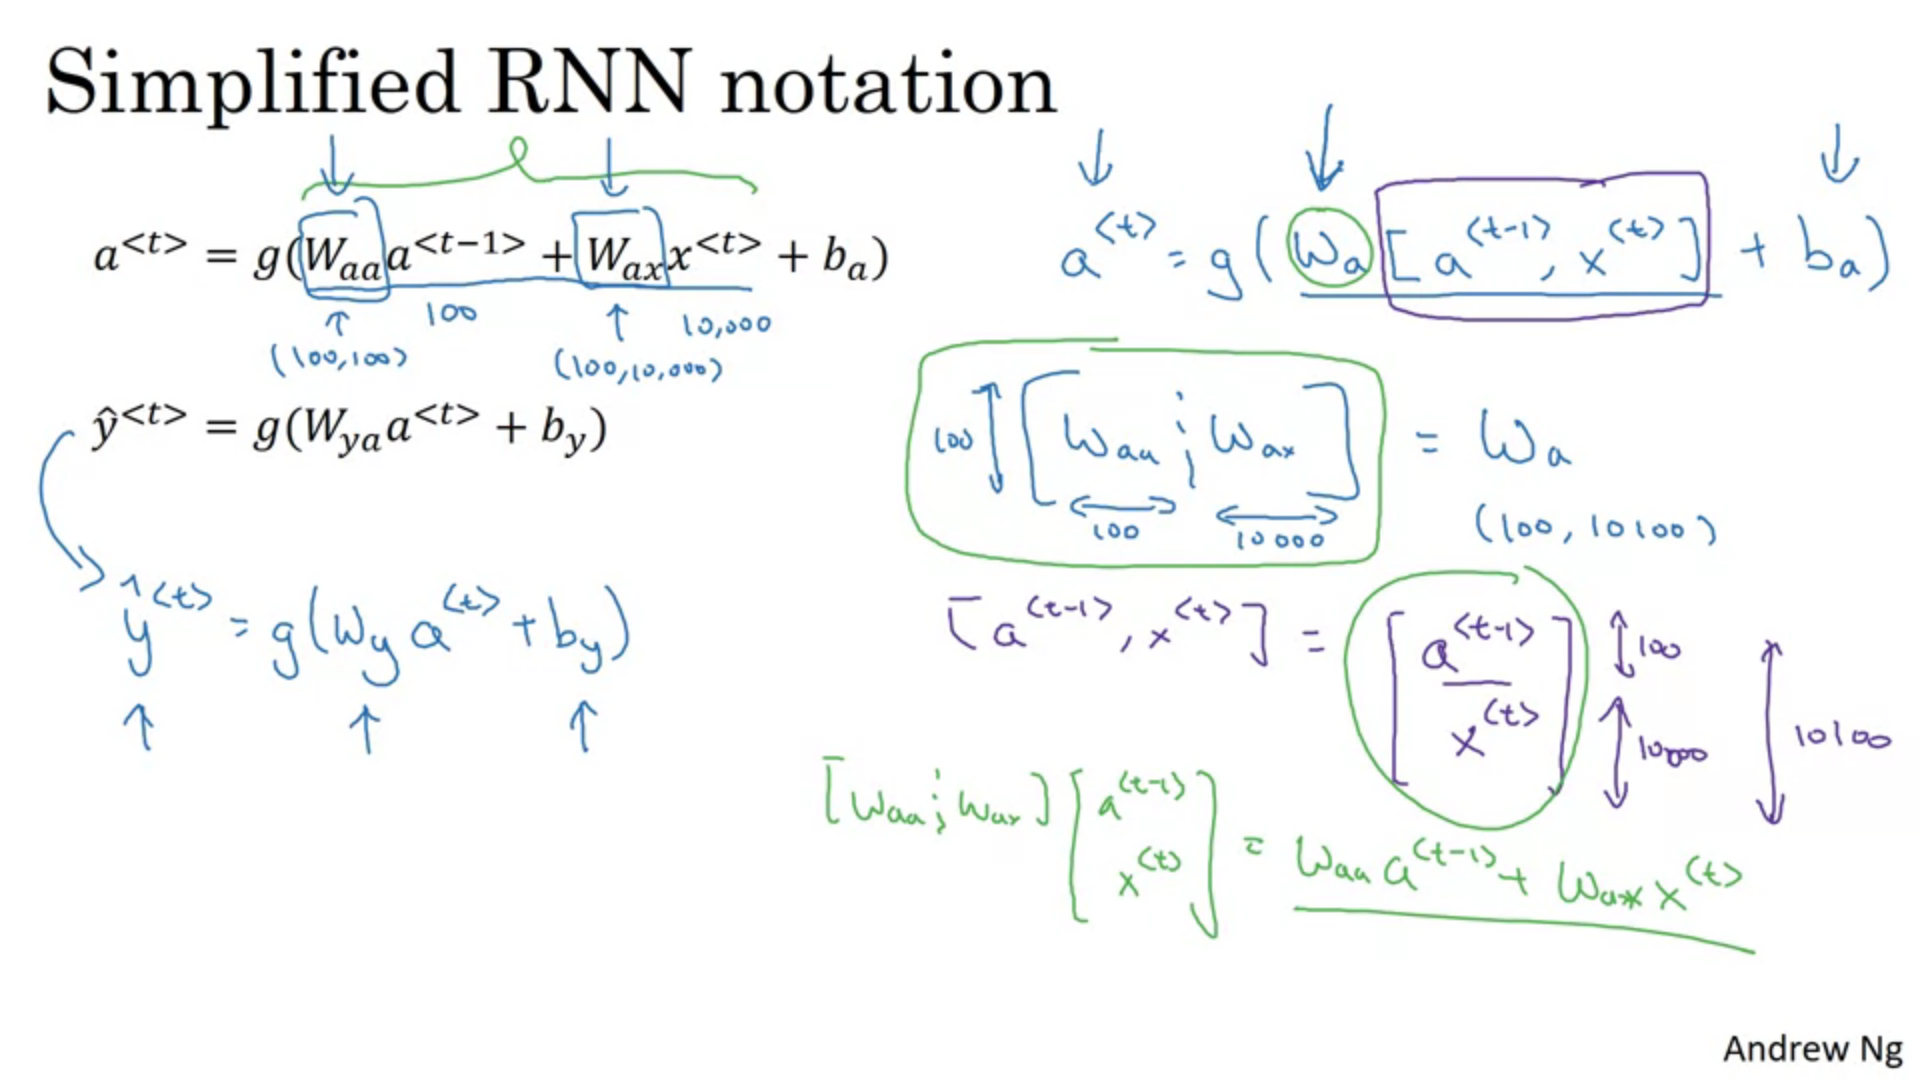 Simplified RNN notation
a<t> = g(Waa a<t−1> + Wax x<t> + ba)
100
10,000
(100,100)
(100,10,000)
ŷ<t> = g(Wya a<t> + by)
ŷ<t> = g(Wy a<t> + by)
a<t> = g(Wa [a<t-1>, x<t>] + ba)
100 [Waa ¦ Wax] = Wa
100 10000
(100, 10100)
[a<t-1>, x<t>] = [a<t-1> 100
x<t>] 10000
10100
[Waa ¦ Wax] [a<t-1>
x<t>] = Waa a<t-1> + Wax x<t>
Andrew Ng